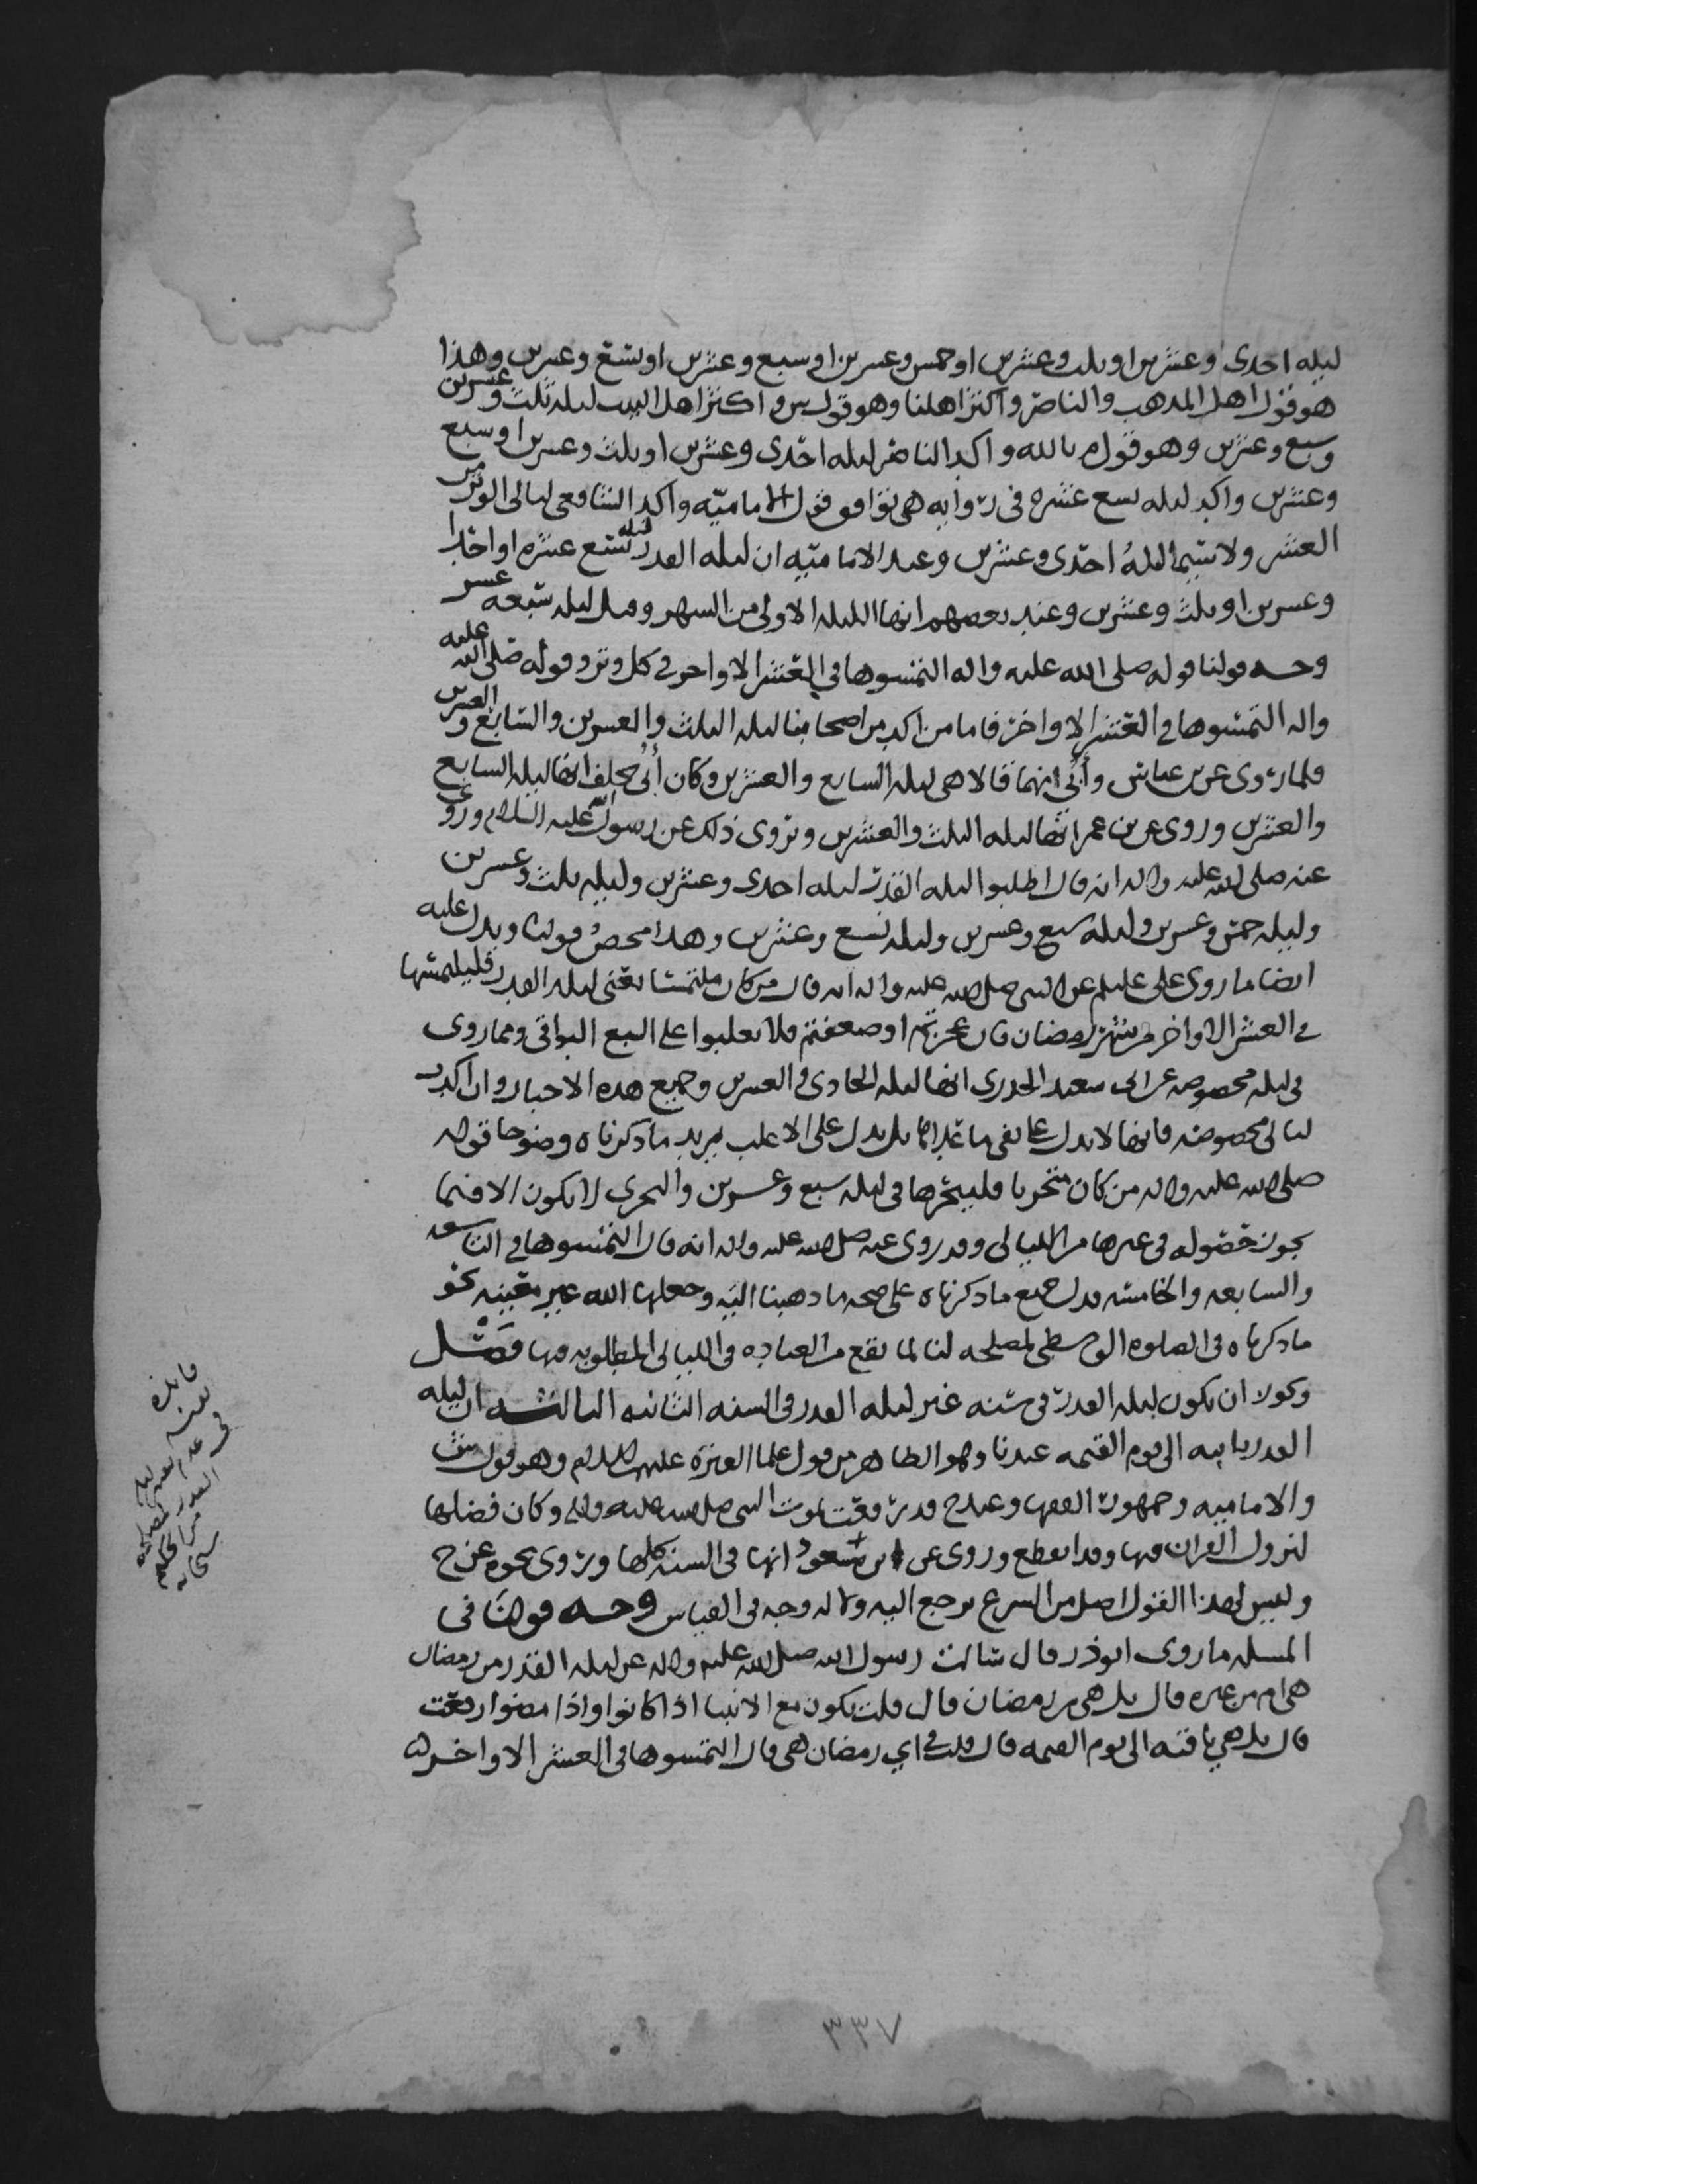 ليله احدى وعشرين او ثلث وعشرين او خمس وعشرين او سبع وعشرين او تسع وعشرين وهذا
هو قول اهل المذهب والناصر واكثر اهلنا وهو قول س واكثر اهل البيت ليله ثلث وعشرين
وسبع وعشرين وهو قول م بالله واكد الناصر ليله احدى وعشرين او ثلث وعشرين او سبع
وعشرين واكد ليله تسع عشره في روايه هي توافق قول الاماميه واكد الشافعي ليالي الوتر من
العشر ولا سيما ليله احدى وعشرين وعند الاماميه ان ليله القدر ليله تسع عشره او احدا
وعشرين او ثلث وعشرين وعند بعضهم انها الليله الاولى من الشهر وقيل ليله سبعه عشر
وجه قولنا قوله صلى الله عليه واله التمسوها في العشر الاواخر في كل وتر وقوله صلى الله عليه
واله التمسوها في العشر الاواخر فاما من اكد من اصحابنا ليله الثلث والعشرين والسابع والعشرين
فلما روى عن بن عباس وأبي انهما قالا هي ليله السابع والعشرين وكان أبي يحلف انها ليله السابع
والعشرين وروى عن بن عمر انها ليله الثلث والعشرين وتروى ذلك عن رسول الله عليه السلام وروي
عنه صلى الله عليه واله انه قال اطلبوا ليله القدر ليله احدى وعشرين وليله ثلث وعشرين
وليله خمس وعشرين وليله سبع وعشرين وليله تسع وعشرين وهذا محض قولنا ويدل عليه
ايضا ما روى علي عليلم عن النبي صلى الله عليه واله انه قال من كان ملتمسا يعني ليله القدر فليلتمسها
في العشر الاواخر من شهر رمضان فان عجزتم او ضعفتم فلا تغلبوا على السبع البواقي ومما روى
في ليله مخصوصه عن ابي سعيد الخدري انها ليله الحادي والعشرين وجميع هذه الاخبار وان اكدت
ليالي مخصوصه فانها لا تدل على نفي ما عداها بل تدل على الاغلب يزيد ما ذكرناه وضوحا قوله
صلى الله عليه واله من كان متحريا فليتحرها في ليله سبع وعشرين والتحري لا يكون الا فيما
يجوز حصوله في غيرها من الليالي وقد روى عنه صلى الله عليه واله انه قال التمسوها في التاسعه
والسابعه والخامسه فدل جميع ما ذكرناه على صحه ما ذهبنا اليه وجعلها الله غير معينه نحو
ما ذكرناه في الصلوه الوسطى لمصلحه لنا لما يقع من العباده في الليالي المطلوبه فيها فصل
ويجوز ان تكون ليله القدر في سنه غير ليله القدر في السنه الثانيه الثالثه ان ليله
القدر باقيه الى يوم القيمه عندنا وهو الظاهر من قول علما العتره عليهم السلام وهو قول ش
والاماميه وجمهور الفقها وعند ح قد رفعت بموت النبي صلى الله عليه واله وكان فضلها
لنزول القران فيها وقد انقطع وروى عن ابن مسعود انها في السنه كلها وتروى نحوه عن ح
وليس لهذا القول اصل من الشرع يرجع اليه ولا له وجه في القياس وجه قولنا في
المسله ما روى ابوذر قال سالت رسول الله صلى الله عليه واله عن ليله القدر من رمضان
هي ام من غيره قال بل هي من رمضان قال قلت تكون مع الانبيا اذا كانوا واذا مضوا رفعت
قال بل هي باقيه الى يوم القيمه قال قلت في اي رمضان هي قال التمسوها في العشر الاواخر
فايده
في عدم تعيين ليله
القدر لمصلحه
من الحكيم
سبحانه
٣٣٧